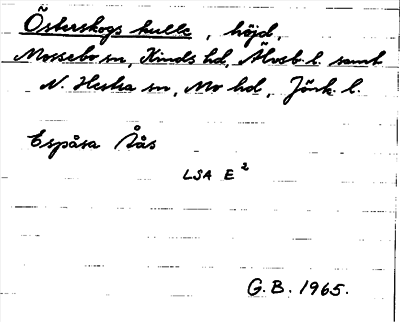 Österskogs kulle, höjd,
Mossebo sn, Kinds hd, Älvsb. l. samt
N. Hestra sn, Mo hd, Jönk. l.
Espåsa Ås
LSA E²
G.B. 1965.